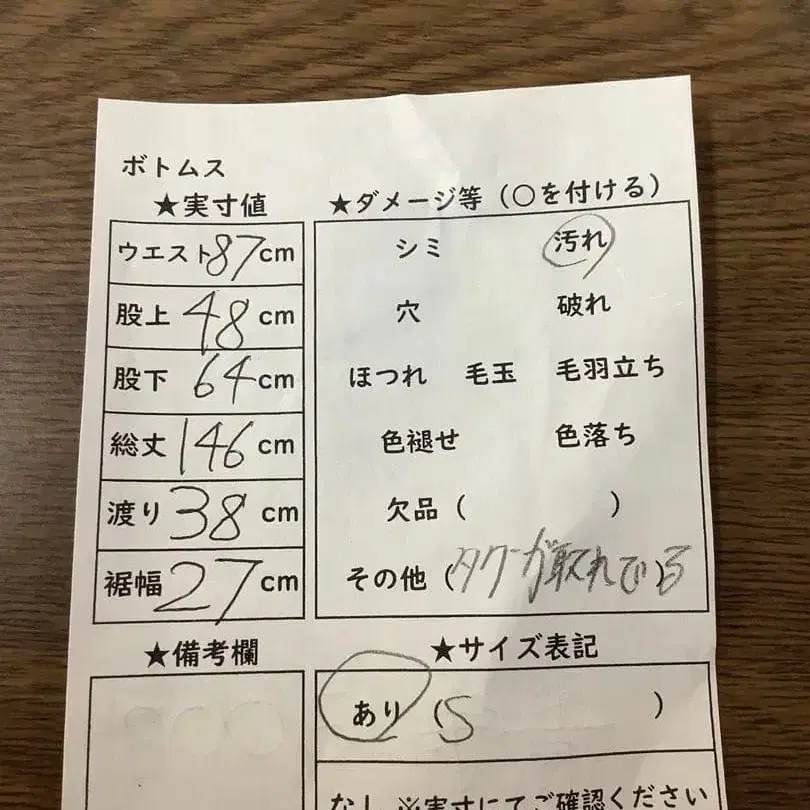 ボトムス
★実寸値
ウエスト 87 cm
股上 48 cm
股下 64 cm
総丈 146 cm
渡り 38 cm
裾幅 27 cm
★備考欄
★ダメージ等（○を付ける）
シミ 汚れ
穴 破れ
ほつれ 毛玉 毛羽立ち
色褪せ 色落ち
欠品（ ）
その他（タグが取れている）
★サイズ表記
あり（S ）
なし ※実寸にてご確認ください